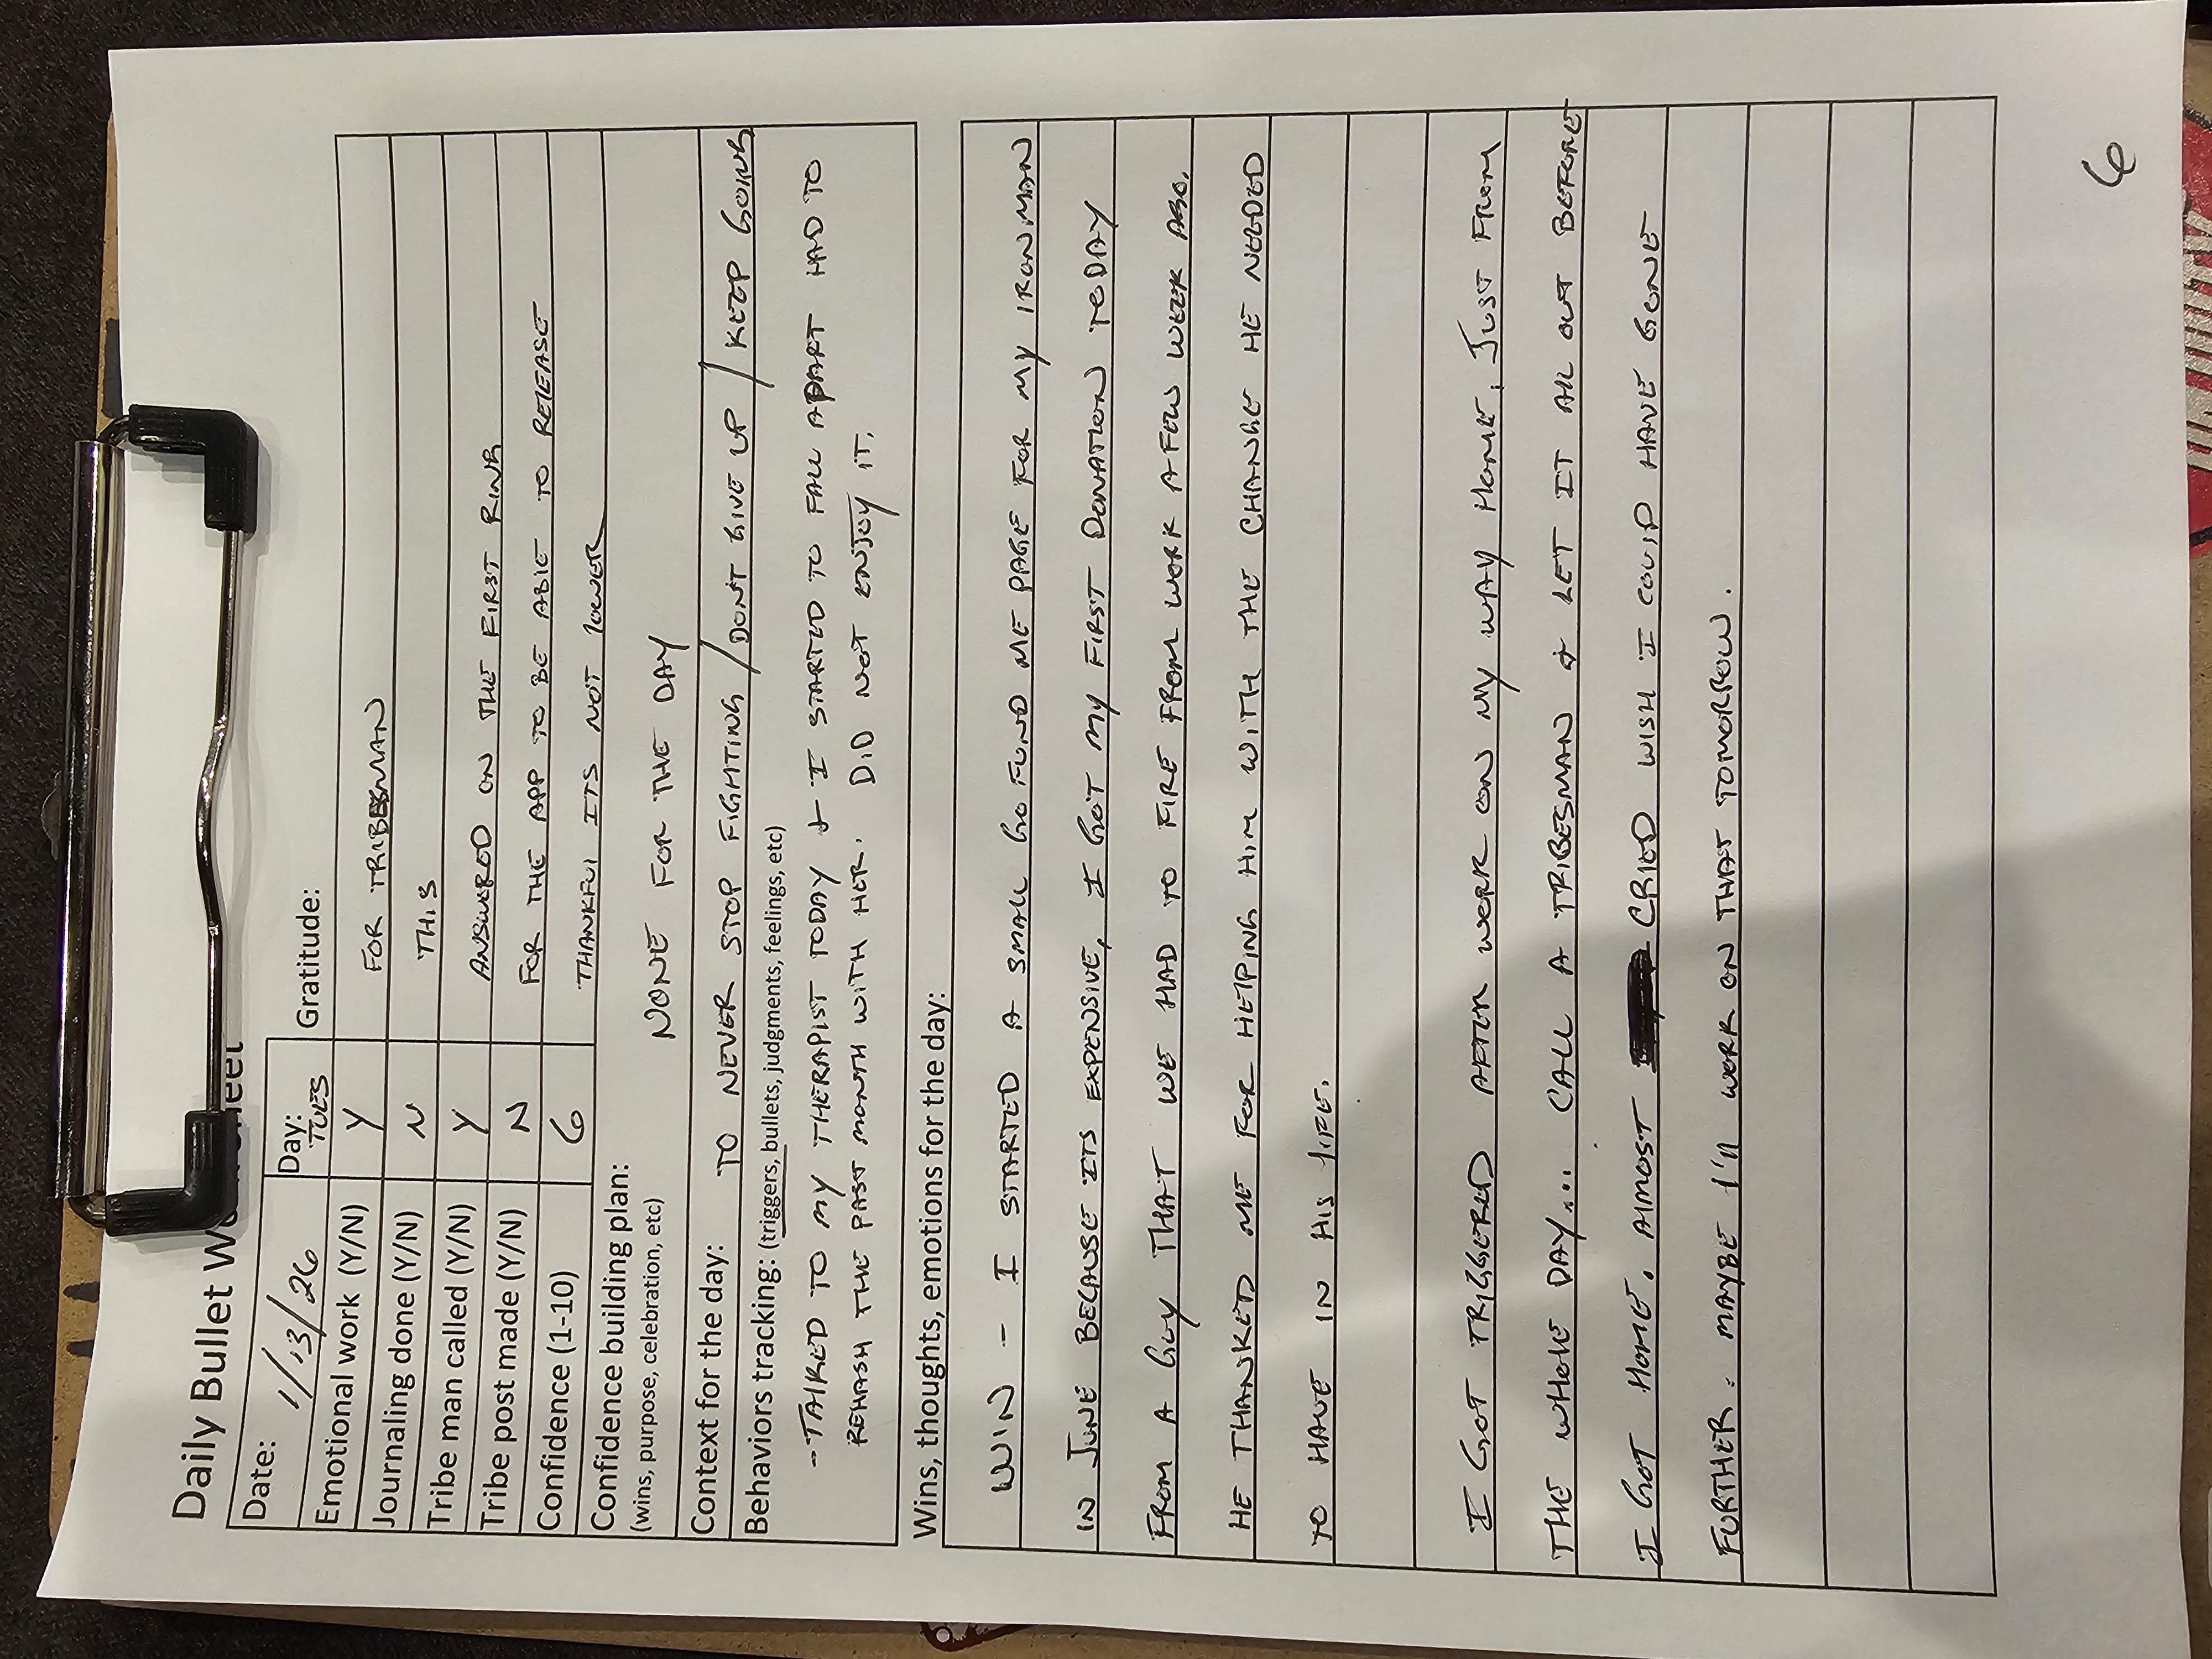 Daily Bullet Wo
Date: 1/13/26 Day: TUES Gratitude:
Emotional work (Y/N) Y FOR TRIBESMAN
Journaling done (Y/N) N THIS
Tribe man called (Y/N) Y ANSWERED ON THE FIRST RING
Tribe post made (Y/N) N FOR THE APP TO BE ABLE TO RELEASE
Confidence (1-10) 6 THANKFUL ITS NOT LOWER
Confidence building plan:
(wins, purpose, celebration, etc) NONE FOR THE DAY
Context for the day: TO NEVER STOP FIGHTING / DONT GIVE UP / KEEP GOING
Behaviors tracking: (triggers, bullets, judgments, feelings, etc)
- TALKED TO MY THERAPIST TODAY + I STARTED TO FALL APART HAD TO
REHASH THE PAST MONTH WITH HER. DID NOT ENJOY IT.
Wins, thoughts, emotions for the day:
WIN - I STARTED A SMALL GO FUND ME PAGE FOR MY IRONMAN
IN JUNE BECAUSE ITS EXPENSIVE, I GOT MY FIRST DONATION TODAY
FROM A GUY THAT WE HAD TO FIRE FROM WORK A FEW WEEK AGO.
HE THANKED ME FOR HELPING HIM WITH THE CHANGE HE NEEDED
TO HAVE IN HIS LIFE.
I GOT TRIGGERED AFTER WORK ON MY WAY HOME. JUST FROM
THE WHOLE DAY.... CALL A TRIBESMAN + LET IT ALL OUT BEFORE
I GOT HOME. ALMOST CRIED WISH I COULD HAVE GONE
FURTHER. MAYBE I'LL WORK ON THAT TOMORROW.
6